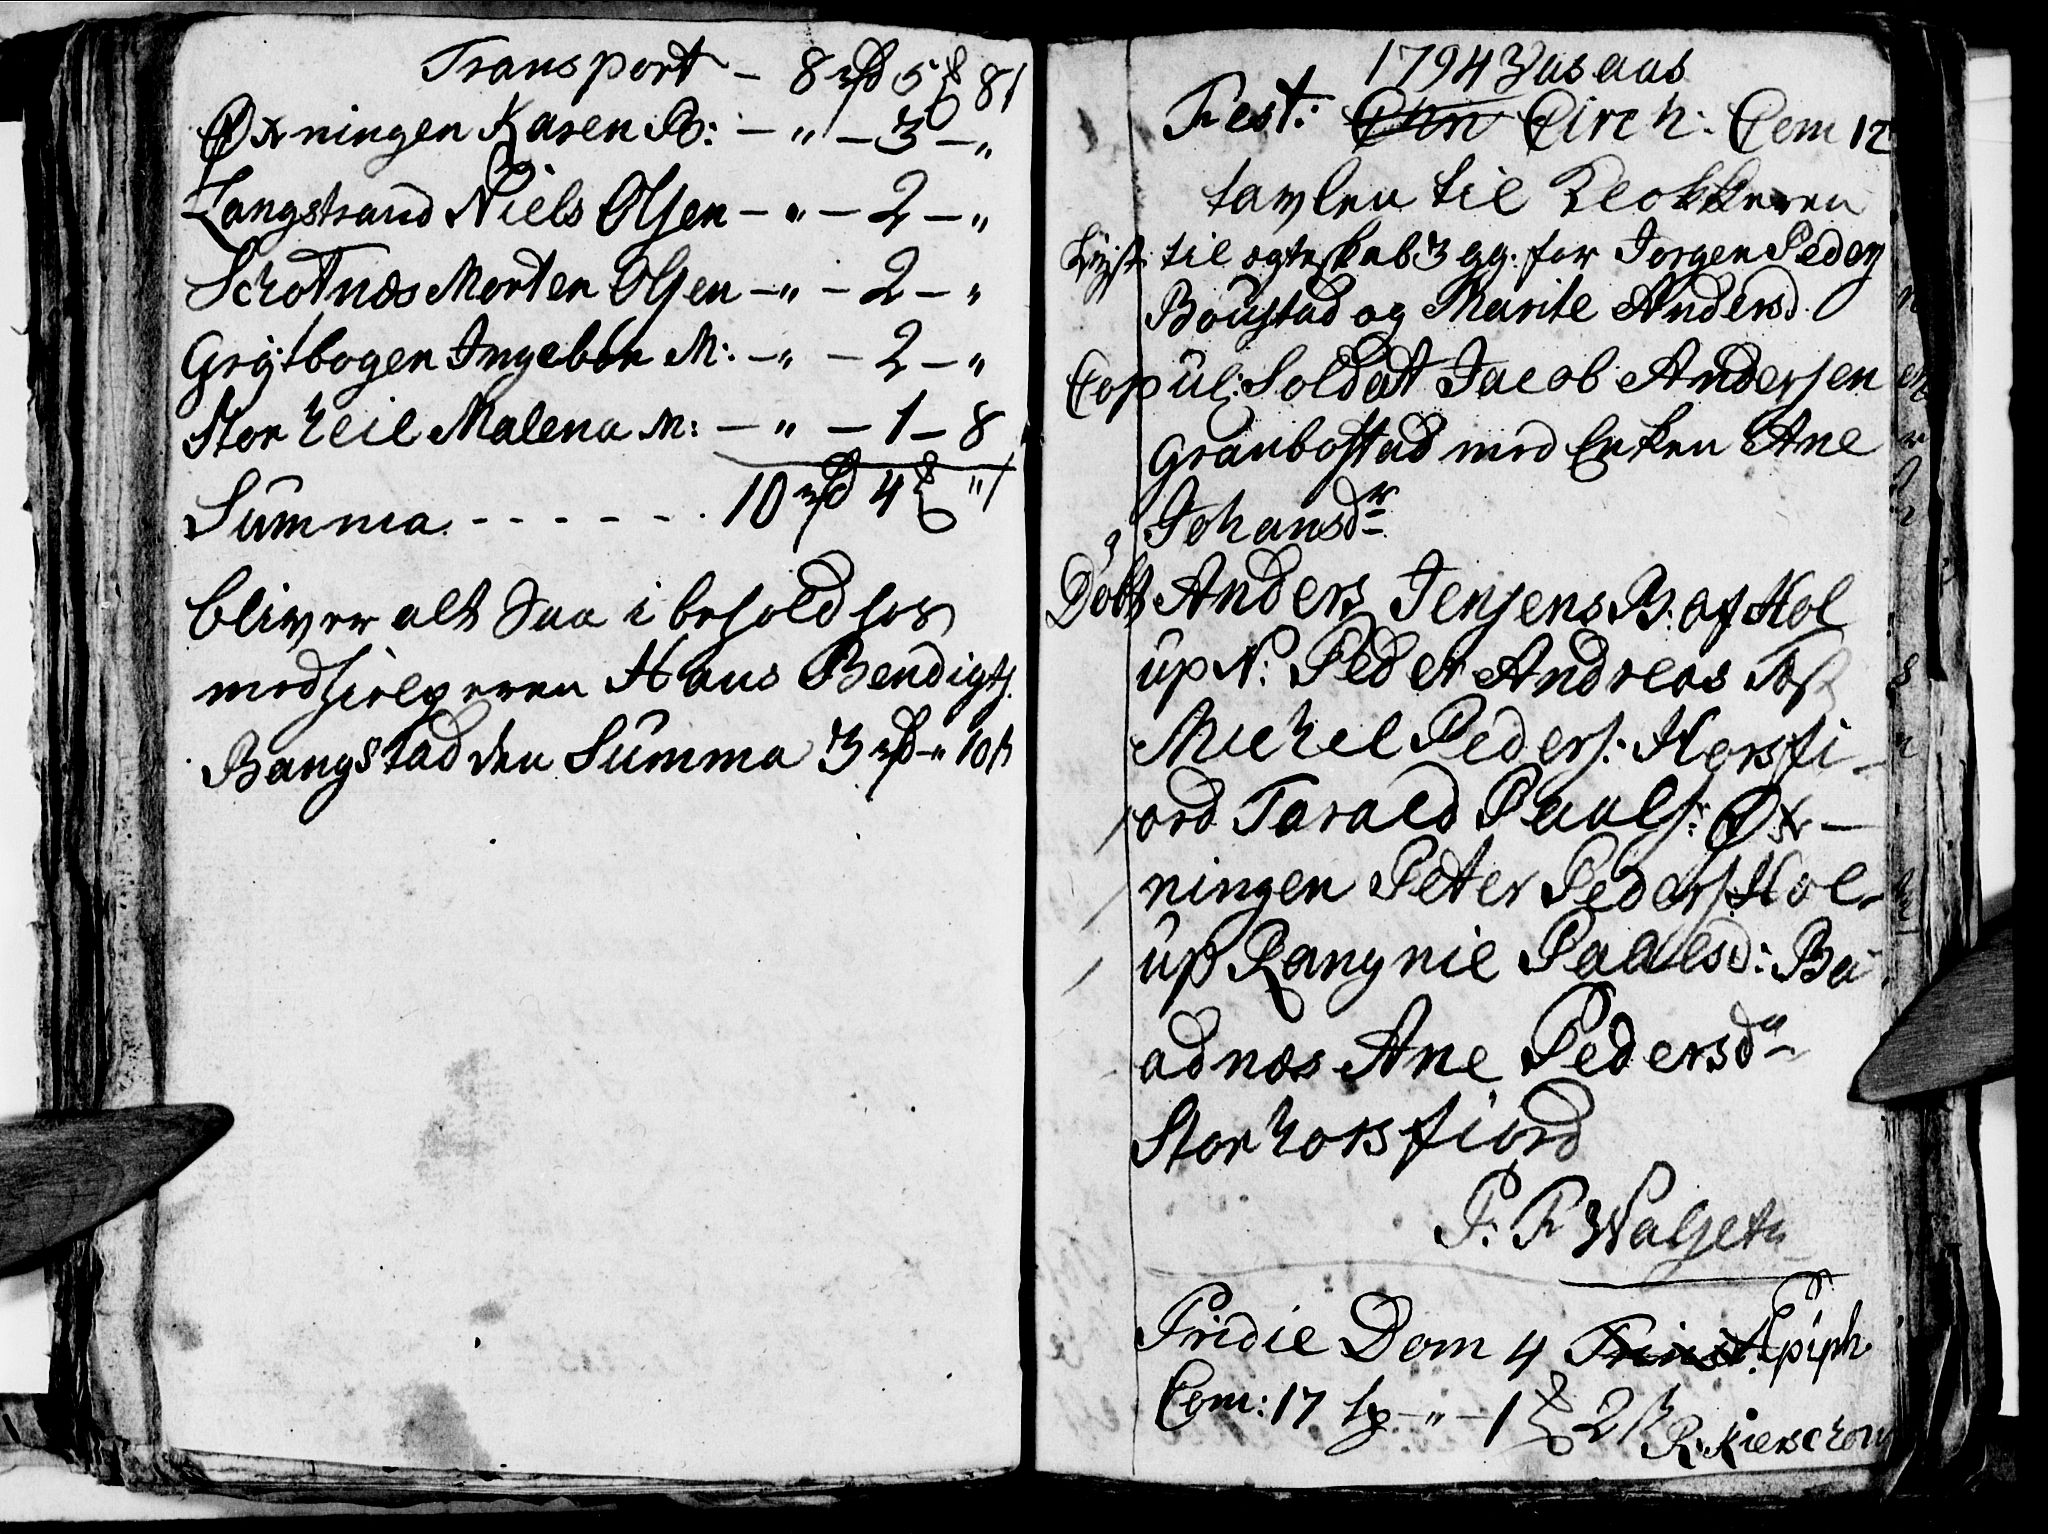 Transport – 8 rd 5 ℥ 8 ſ
Øxningen Karen B: – " – 3 – "
Langstrand Niels Olsen – " – 2 – "
Schotnæs Morten Olsen – " – 2 – "
Grÿtbogen Ingebor M: – " – 2 – "
Stor heil Malena M: – " – 1 – 8
Summa. - - - - - - . 10 rd 4 ℥ " ſ
bliver alt Saa i behold hos
medhielperen Hans Bendigts.
Bangstad den Summa 3 rd – " 10 ſ
1794 Vasaas
Fest: Circ h: Com 12
tavlen til Klokkeren
Lÿst til ægteskab 3 gg. for Jorgen Peders
Boustad og Marite Andersd.
Copul: Soldat Jacob Andersen
Granbostad med Enken Ane
Johansdr
Døbt Anders Jensens B. af Hol
up N: Peder Andreas Test
Michel Peders: Horsfi-
ord Tarald Paals: Øx-
ningen Peter Peders. Hol-
up Rangnil Paalsd: Ba-
adnæs Ane Pedersdr
Storhorsfiord
P. F Walseth
Pridie Dom 4 Trinit. Epiph.
Com: 17 tx – " – 1 ℥ 2 ſ
R. Kierschow